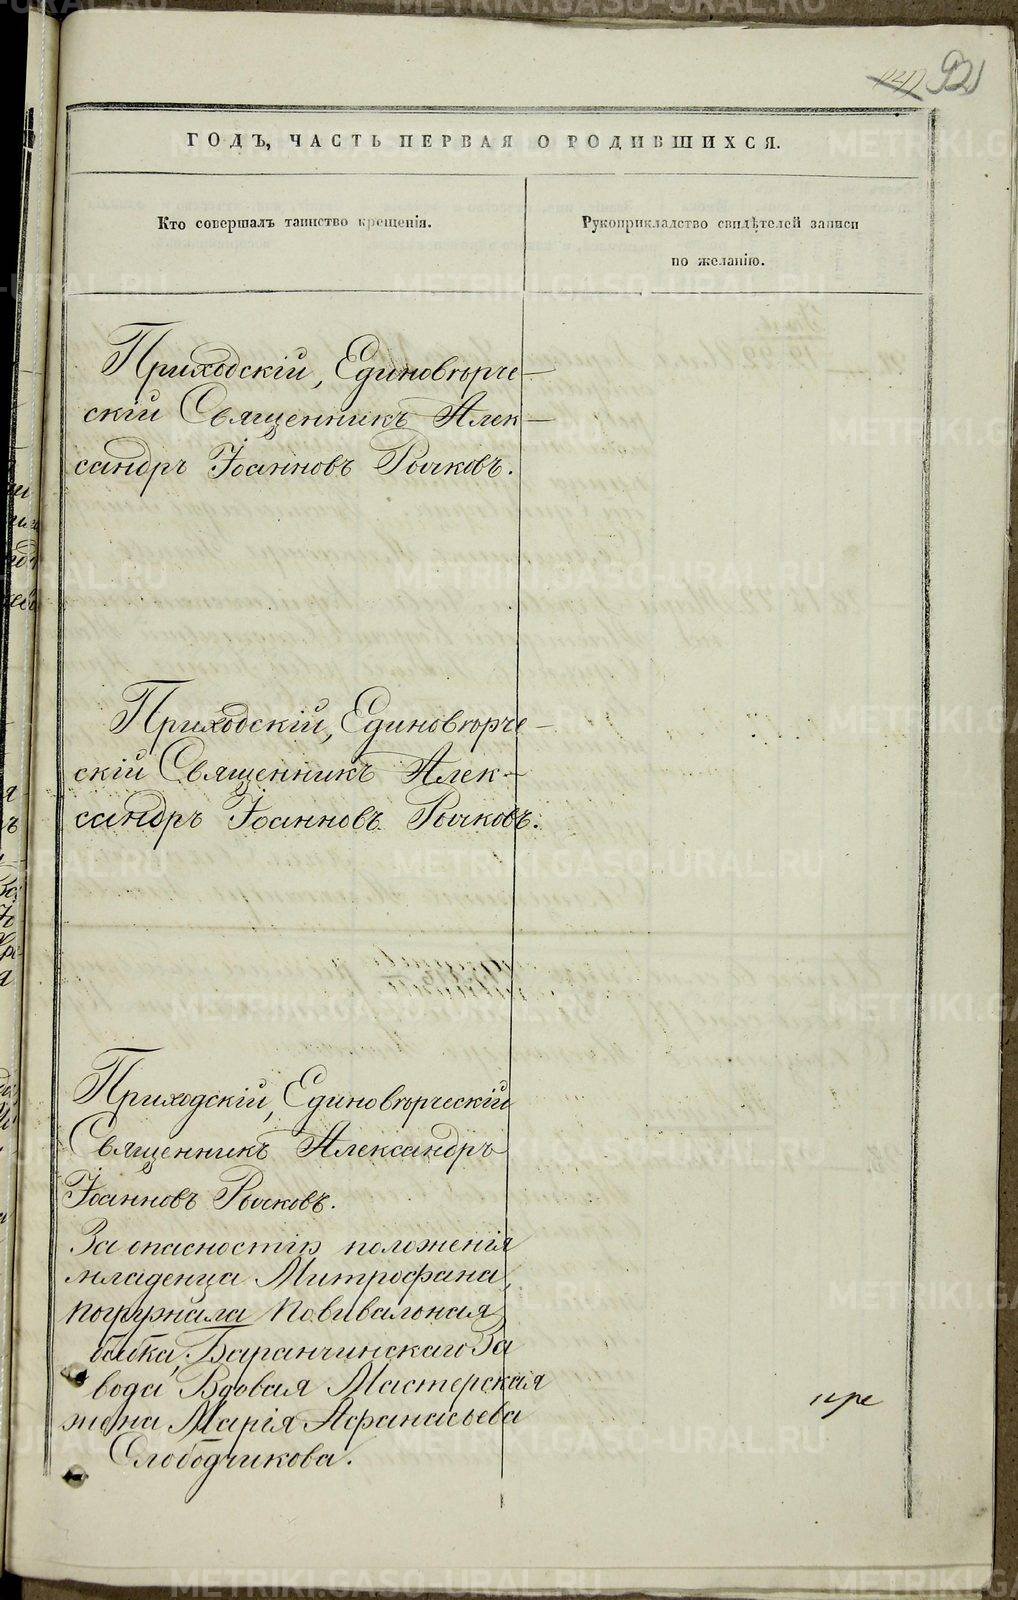 92
ГОДЪ, ЧАСТЬ ПЕРВАЯ О РОДИВШИХСЯ.
Кто совершалъ таинство крещенія.
Рукоприкладство свидѣтелей записи
по желанію.
Приходскій, Единовѣрче-
скій Священникъ Алек-
сандръ Іоанновъ Рычковъ.
Приходскій, Единовѣрче-
скій Священникъ Алек-
сандръ Іоанновъ Рычковъ.
Приходскій, Единовѣрческій
Священникъ Александръ
Іоанновъ Рычковъ.
За опасностію положенія
младенца Митрофана,
погружала повивальная
бабка, Баранчинскаго За
вода Вдовая Мастерская
жена Марія Афанасьева
Слободчикова.
METRIKI.GASO-URAL.RU